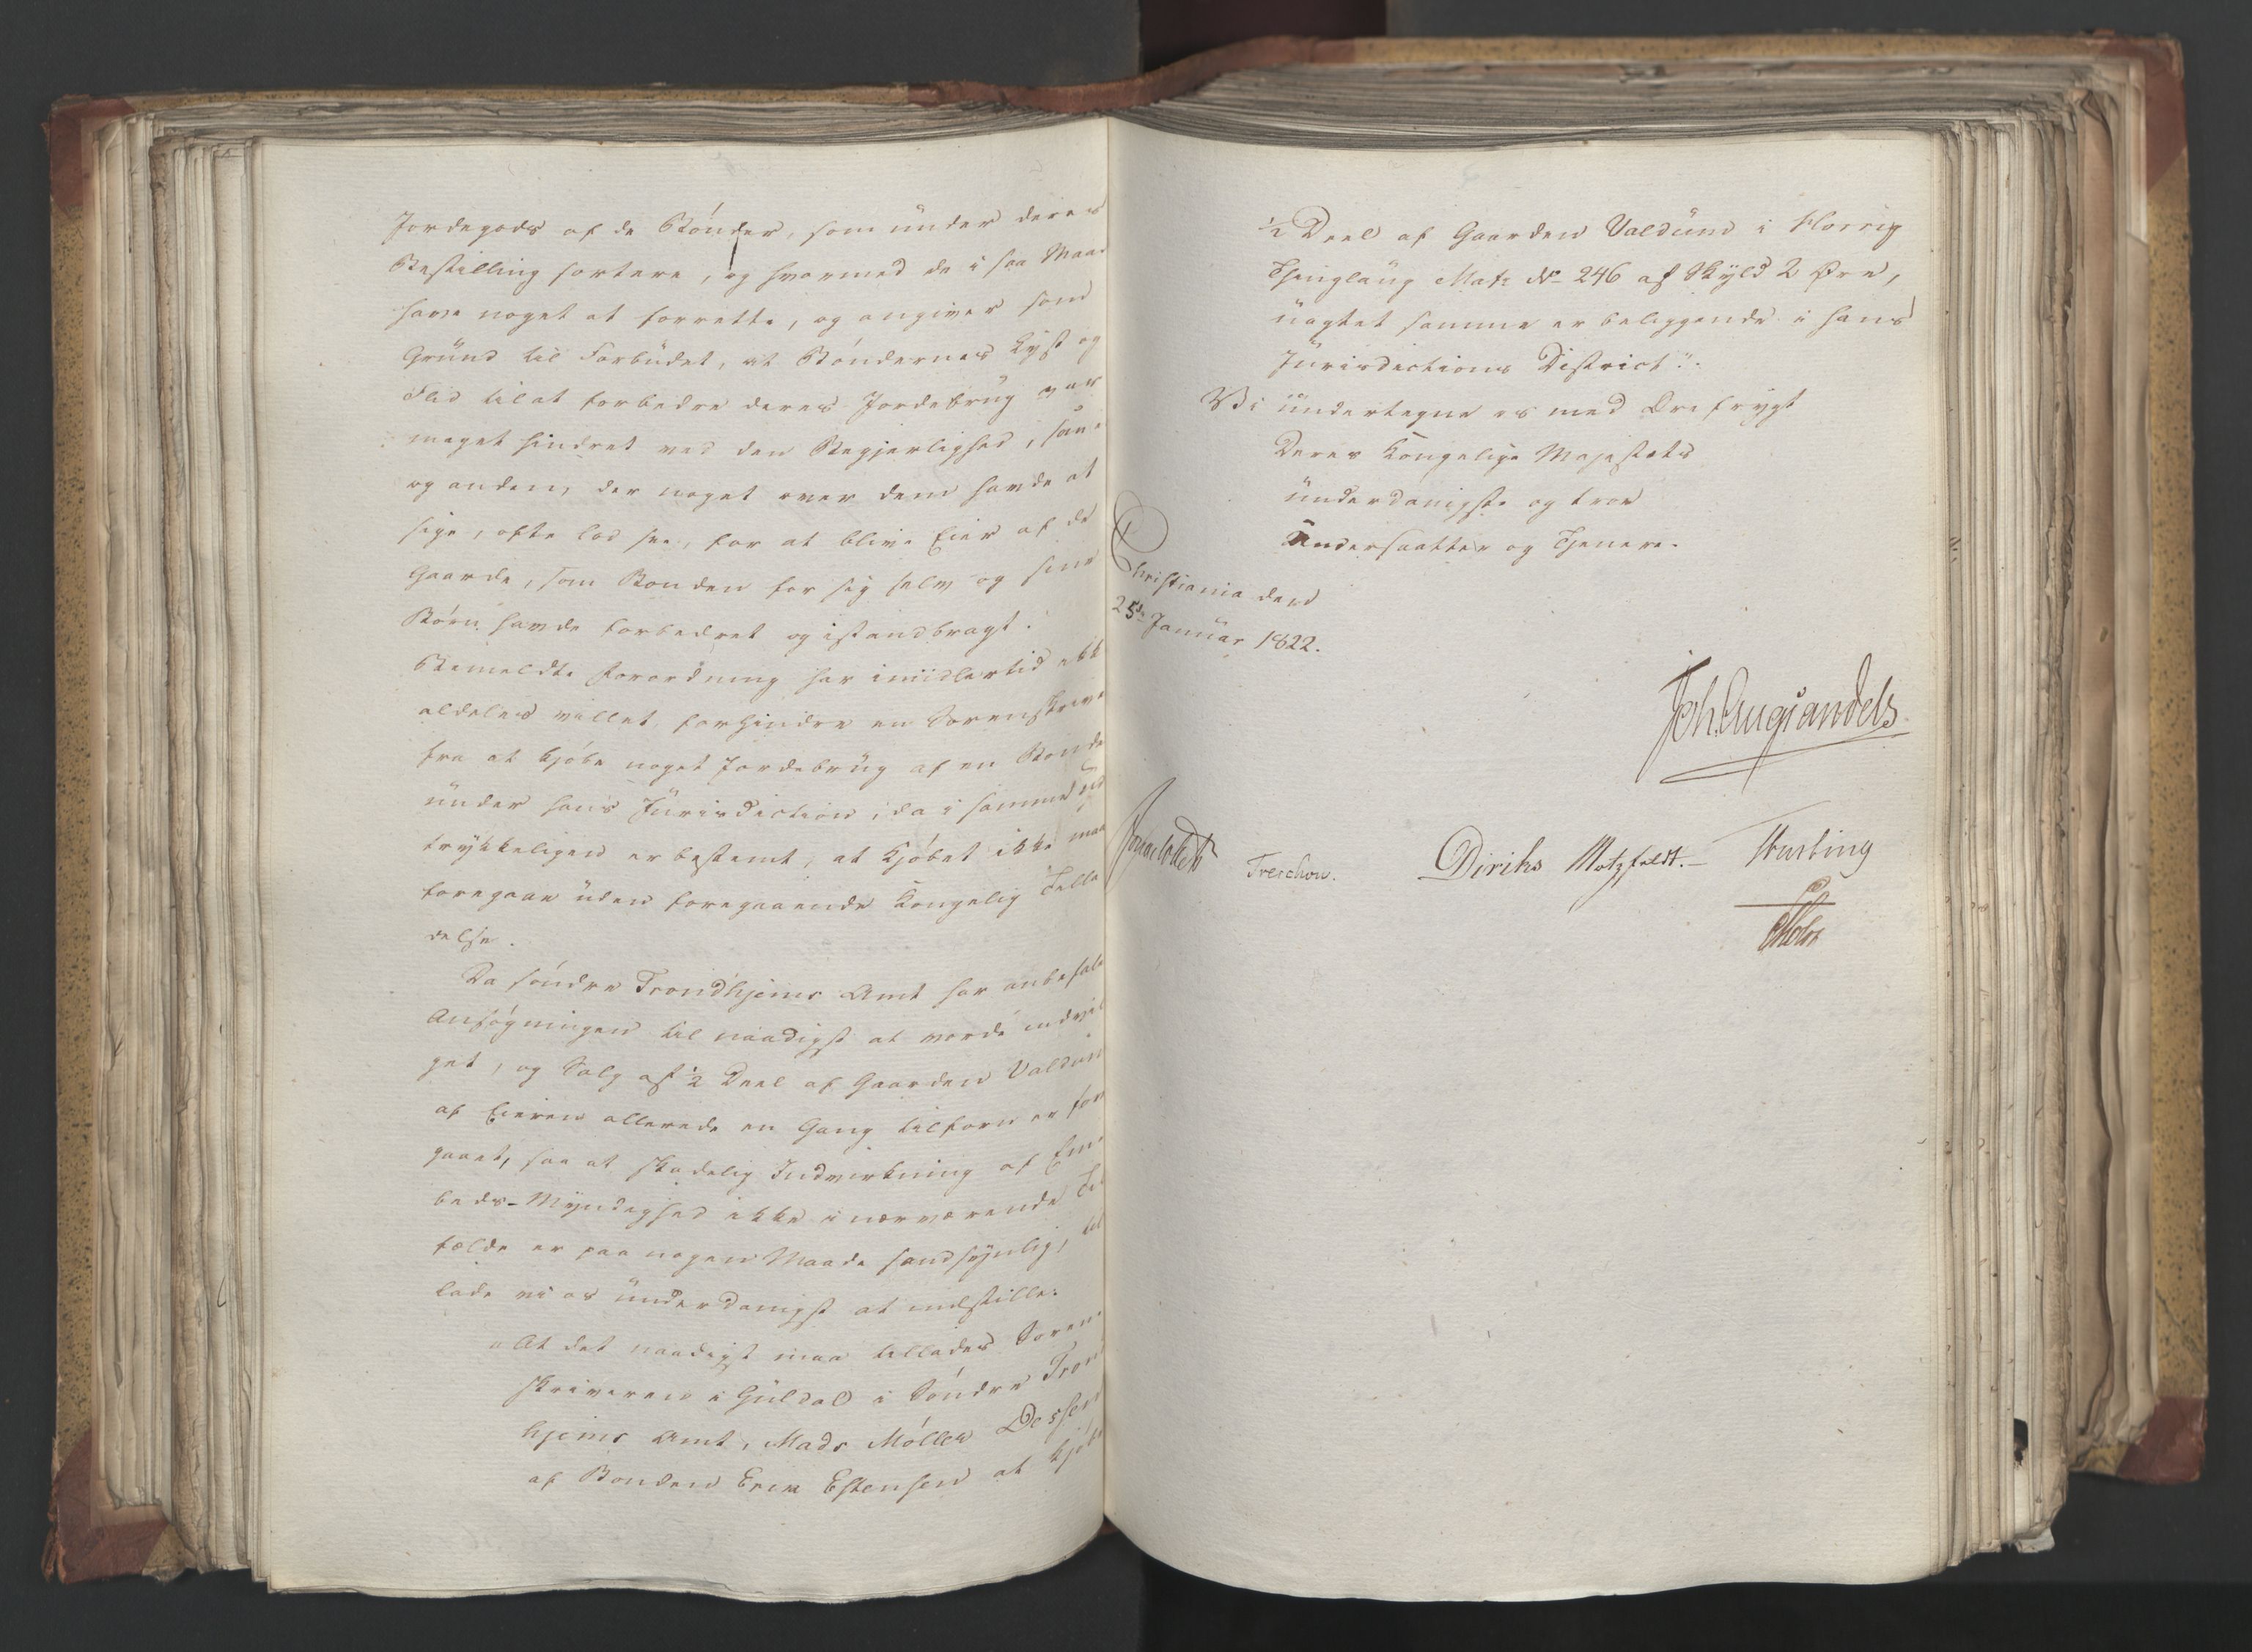 Jordegods af de Bönder, som under deres
Bestilling sortere, og hvormed de i saa Maad
have noget at forrette, og angiver som
Grund til Forbudet, at Böndernes Lyst og
Flid til at forbedre deres Jordebrug var
meget hindret ved den Begjerlighed, saa
og anden, der noget over dem havde at
sige, ofte lod see, for at blive Eier af de
Gaarde, som Bonden for sig selv og sine
Börn havde forbedret og istandbragt.
Bemeldte Forordning har imidlertid ikk
aldeles villet forhindre en Sorenskrive
fra at kjöbe noget Jordebrug af en Bonde
under hans Jurisdiction, da i samme ud
trykkeligen er bestemt, at Kjöbet ikke maa
foregaae uden foregaaende Kongelig Tilla
delse.
Da söndre Trondhjems Amt har anbefale
Ansögningen til naadigst at vorde indvil
get, og Salg af ½ Deel af Gaarden Valdun
af Eieren allerede en Gang tilforn er fore
gaaet, saa at skadelig Indvirkning af Em
beds-Myndighed ikke i nærværende Til
fælde er paa nogen Maade sandsynlig, til
lade vi os underdanigst at indstille:
"At det naadigst maa tillades Soren
skriveren i Guldal i Söndre Tron
hjems Amt, Mads Möller Dessen
af Bonden Erik Estensen at kjöbe
½ Deel af Gaarden Valdum i Horrig
Thinglaug Matr. No 246 af Skyld 2 Øre,
uagtet samme er beliggende i hans
Jurisdictions District".
Vi undertegne os med Ærefrygt
Deres Kongelige Majestæts
underdanigste og troe
Undersaatter og Tjenere.
Christiania den
25de Januar 1822.
Joh. Aug. Sandels
Sommerhielm Treschow. Diriks Motzfeldt. Fasting
Holst